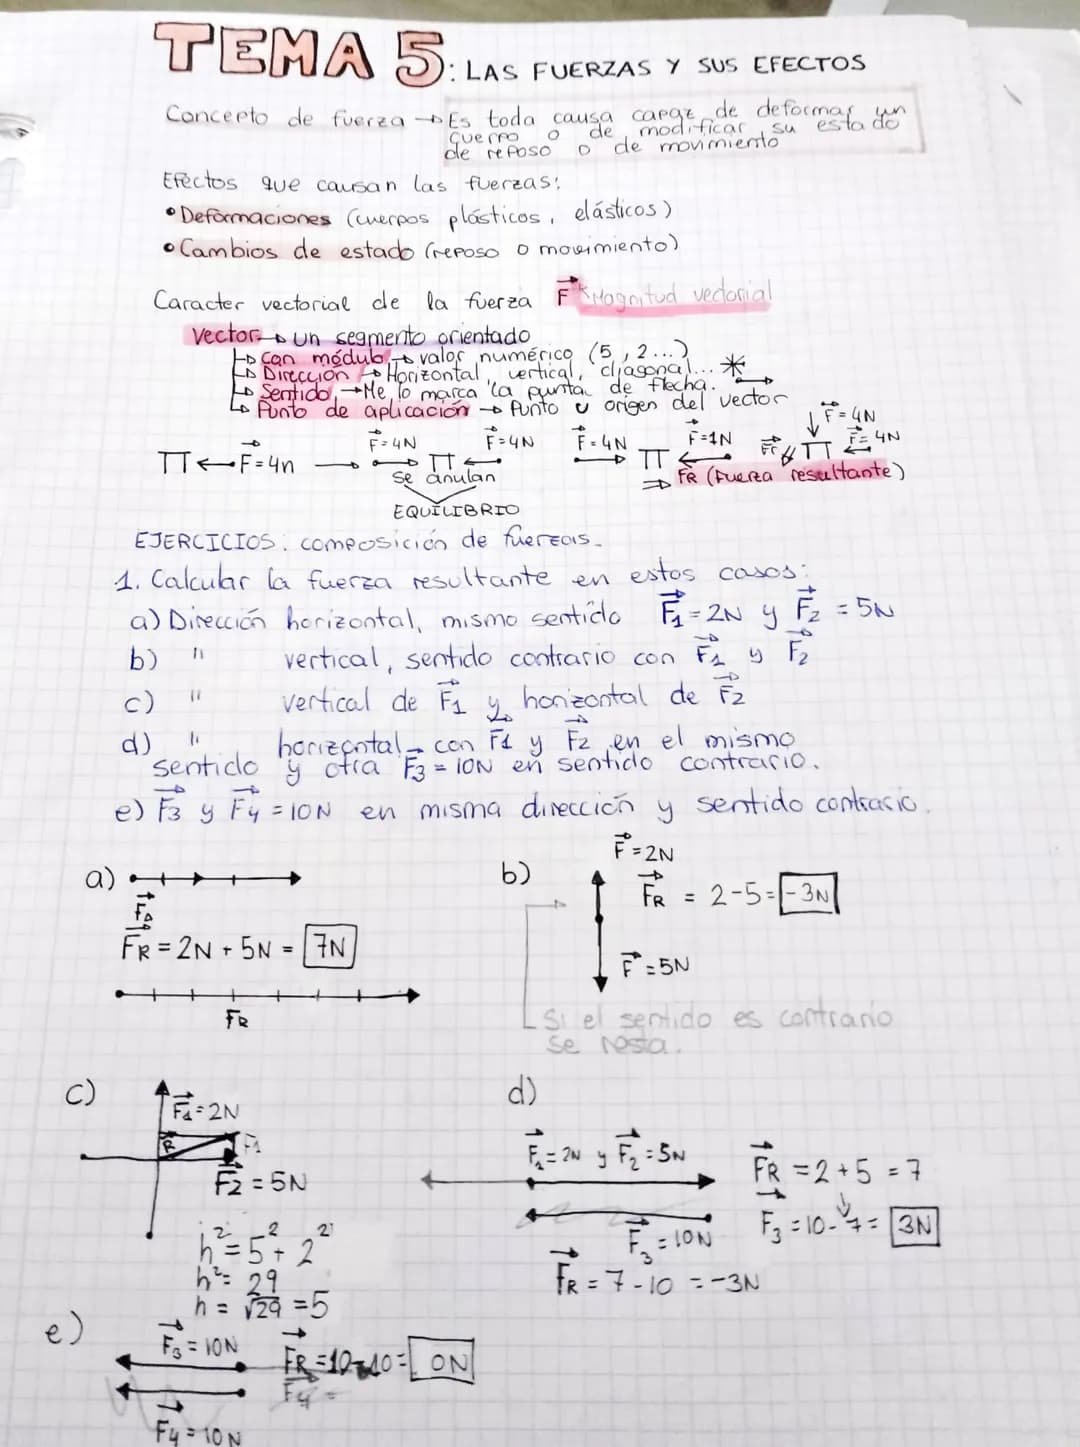 TEMA 5: LAS FUERZAS Y SUS EFECTOS
Concepto de fuerza → Es toda causa capaz de deformar un
cuerpo o de modificar su estado
de reposo o de movimiento
Efectos que causan las fuerzas:
• Deformaciones (cuerpos plásticos, elásticos)
• Cambios de estado (reposo o movimiento)
Caracter vectorial de la fuerza F⃗ Magnitud vectorial
Vector → un segmento orientado
↳ Can módulo → valor numérico (5, 2...)
↳ Dirección → Horizontal, vertical, diagonal...
↳ Sentido → Me lo marca la punta de flecha.
↳ Punto de aplicación → Punto u origen del vector
F⃗=4n
F⃗=4N F⃗=4N
se anulan
EQUILIBRIO
F⃗=4N F⃗=1N
F⃗R (Fuerza resultante)
F⃗=4N
F⃗=4N
EJERCICIOS: composición de fuerzas.
1. Calcular la fuerza resultante en estos casos:
a) Dirección horizontal, mismo sentido F⃗1=2N y F⃗2=5N
b) " vertical, sentido contrario con F⃗1 y F⃗2
c) " vertical de F⃗1 y horizontal de F⃗2
d) " horizontal con F⃗1 y F⃗2 en el mismo
sentido y otra F⃗3=10N en sentido contrario.
e) F⃗3 y F⃗4=10N en misma dirección y sentido contrario.
a)
F⃗R = 2N + 5N = 7N
FR
b)
F⃗=2N
F⃗R = 2-5= -3N
F⃗=5N
Si el sentido es contrario
se resta.
c)
F⃗1=2N
R
F1
F⃗2=5N
h²=5²+2²
h²=29
h=√29=5
d)
F⃗1=2N y F⃗2=5N
F⃗3=10N
F⃗R=7-10=-3N
F⃗R=2+5=7
F⃗3=10-7=3N
e)
F⃗3=10N
F⃗R=10-10=0N
F⃗4=
F⃗4=10N